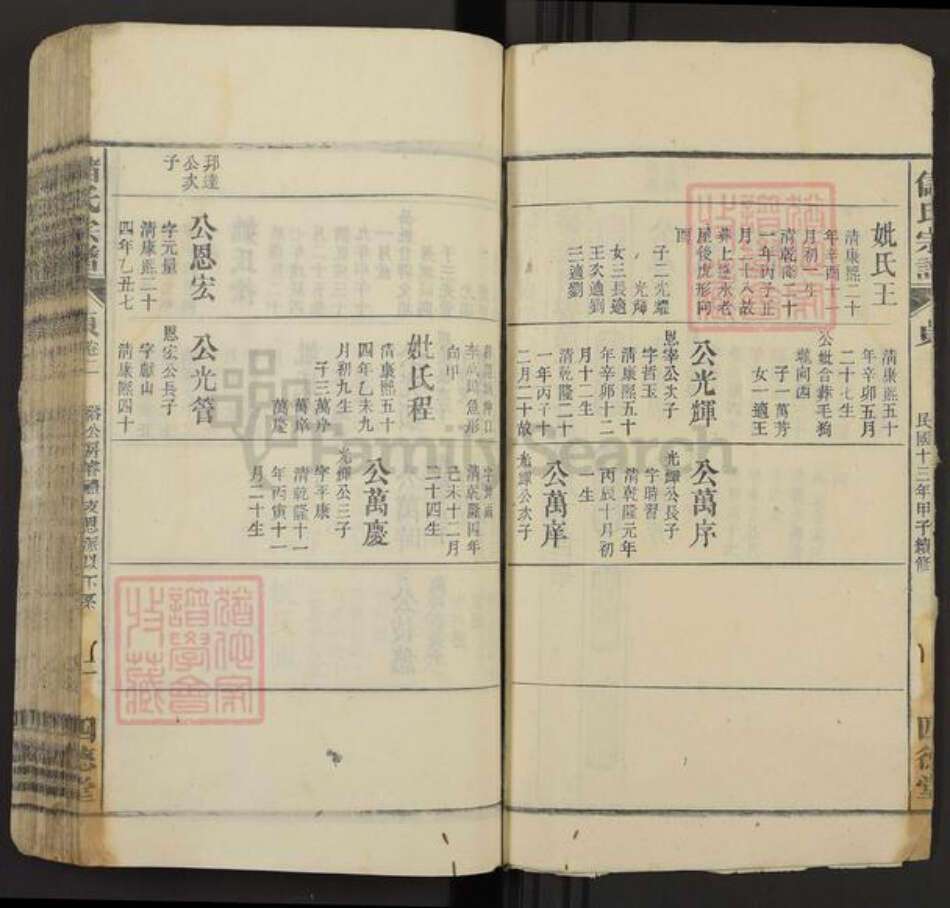 民國十三年甲子續修
四德堂
妣氏王
清康熙二十
年辛酉十一
月初一生
清乾隆二十
一年丙子正
月二十八故
葬上
屋後虎形
酉
子二光耀
光輝
女三長適
王次適劉
三適劉
清康熙五十
年辛卯五月
二十七生
公妣合葬毛狗
向酉
子一萬芳
女一適王
公光輝
恩宰公次子
字哲玉
清康熙五十
年辛卯十二
月十二生
清乾隆二十
一年丙子十
二月二十故
公萬序
光輝公長子
字瑞習
清乾隆元年
丙辰十月初
一生
公萬庠
光輝公次子
清乾隆四年
己未十二月
二十四生
向甲
妣氏程
清康熙五十
四年乙未九
月初九生
子三萬序
萬庠
萬慶
公萬慶
光輝公三子
字平康
清乾隆十一
年丙寅十一
月二十生
邦達
公次
子
公恩宏
字元量
清康熙二十
四年乙丑七
公光管
恩宏公長子
字獻山
清康熙四十
四德堂
FamilySearch